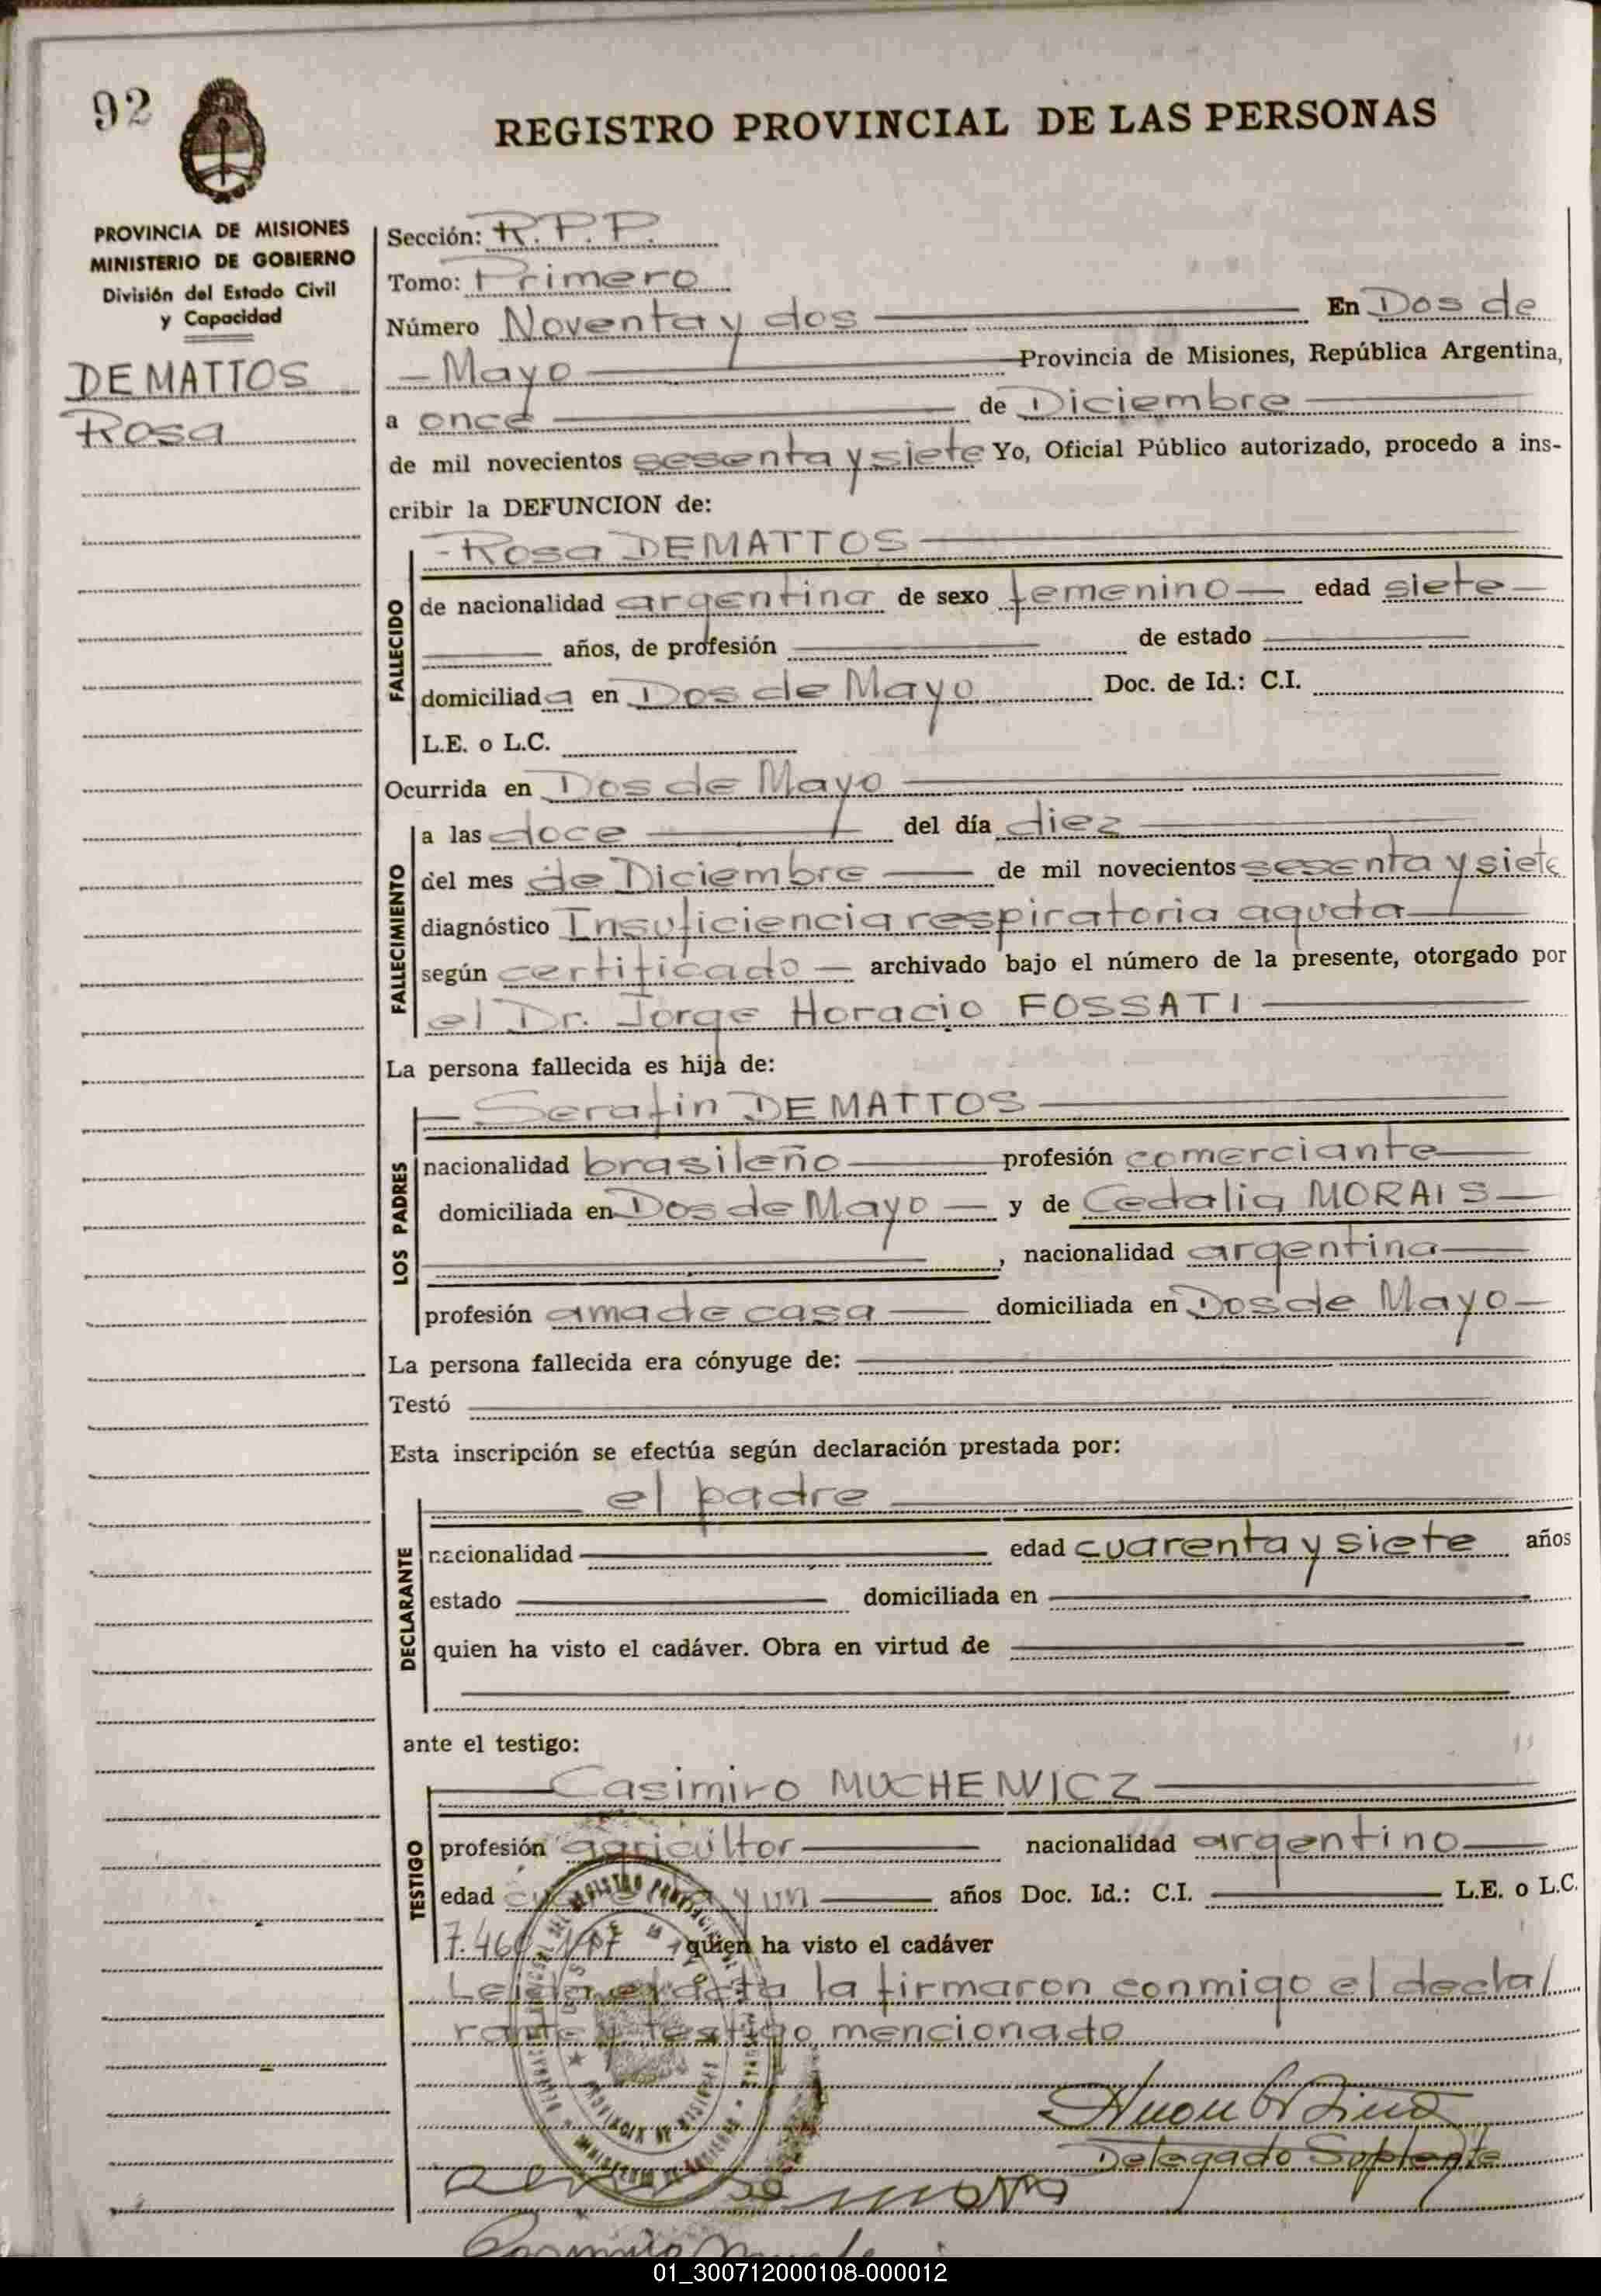 92
REGISTRO PROVINCIAL DE LAS PERSONAS
PROVINCIA DE MISIONES
MINISTERIO DE GOBIERNO
División del Estado Civil
y Capacidad
DEMATTOS
Rosa
Sección: R.P.P.
Tomo: Primero
Número Noventa y dos En Dos de
Mayo Provincia de Misiones, República Argentina,
a once de Diciembre
de mil novecientos sesenta y siete Yo, Oficial Público autorizado, procedo a ins-
cribir la DEFUNCION de:
Rosa DEMATTOS
FALLECIDO
de nacionalidad argentina de sexo femenino edad siete
años, de profesión de estado
domiciliada en Dos de Mayo Doc. de Id.: C.I.
L.E. o L.C.
Ocurrida en Dos de Mayo
FALLECIMIENTO
a las doce del día diez
del mes de Diciembre de mil novecientos sesenta y siete
diagnóstico Insuficiencia respiratoria aguda
según certificado archivado bajo el número de la presente, otorgado por
el Dr. Jorge Horacio FOSSATI
La persona fallecida es hija de:
Serafin DEMATTOS
LOS PADRES
nacionalidad brasileño profesión comerciante
domiciliada en Dos de Mayo y de Cedalia MORAIS
, nacionalidad argentina
profesión ama de casa domiciliada en Dos de Mayo
La persona fallecida era cónyuge de:
Testó
Esta inscripción se efectúa según declaración prestada por:
el padre
DECLARANTE
nacionalidad edad cuarenta y siete años
estado domiciliada en
quien ha visto el cadáver. Obra en virtud de
ante el testigo:
Casimiro MUCHEWICZ
TESTIGO
profesión agricultor nacionalidad argentino
edad y un años Doc. Id.: C.I. L.E. o L.C.
7.460 quien ha visto el cadáver
Leida el acta la firmaron conmigo el decla
rante y testigo mencionado
Delegado Suplente
01_300712000108-000012